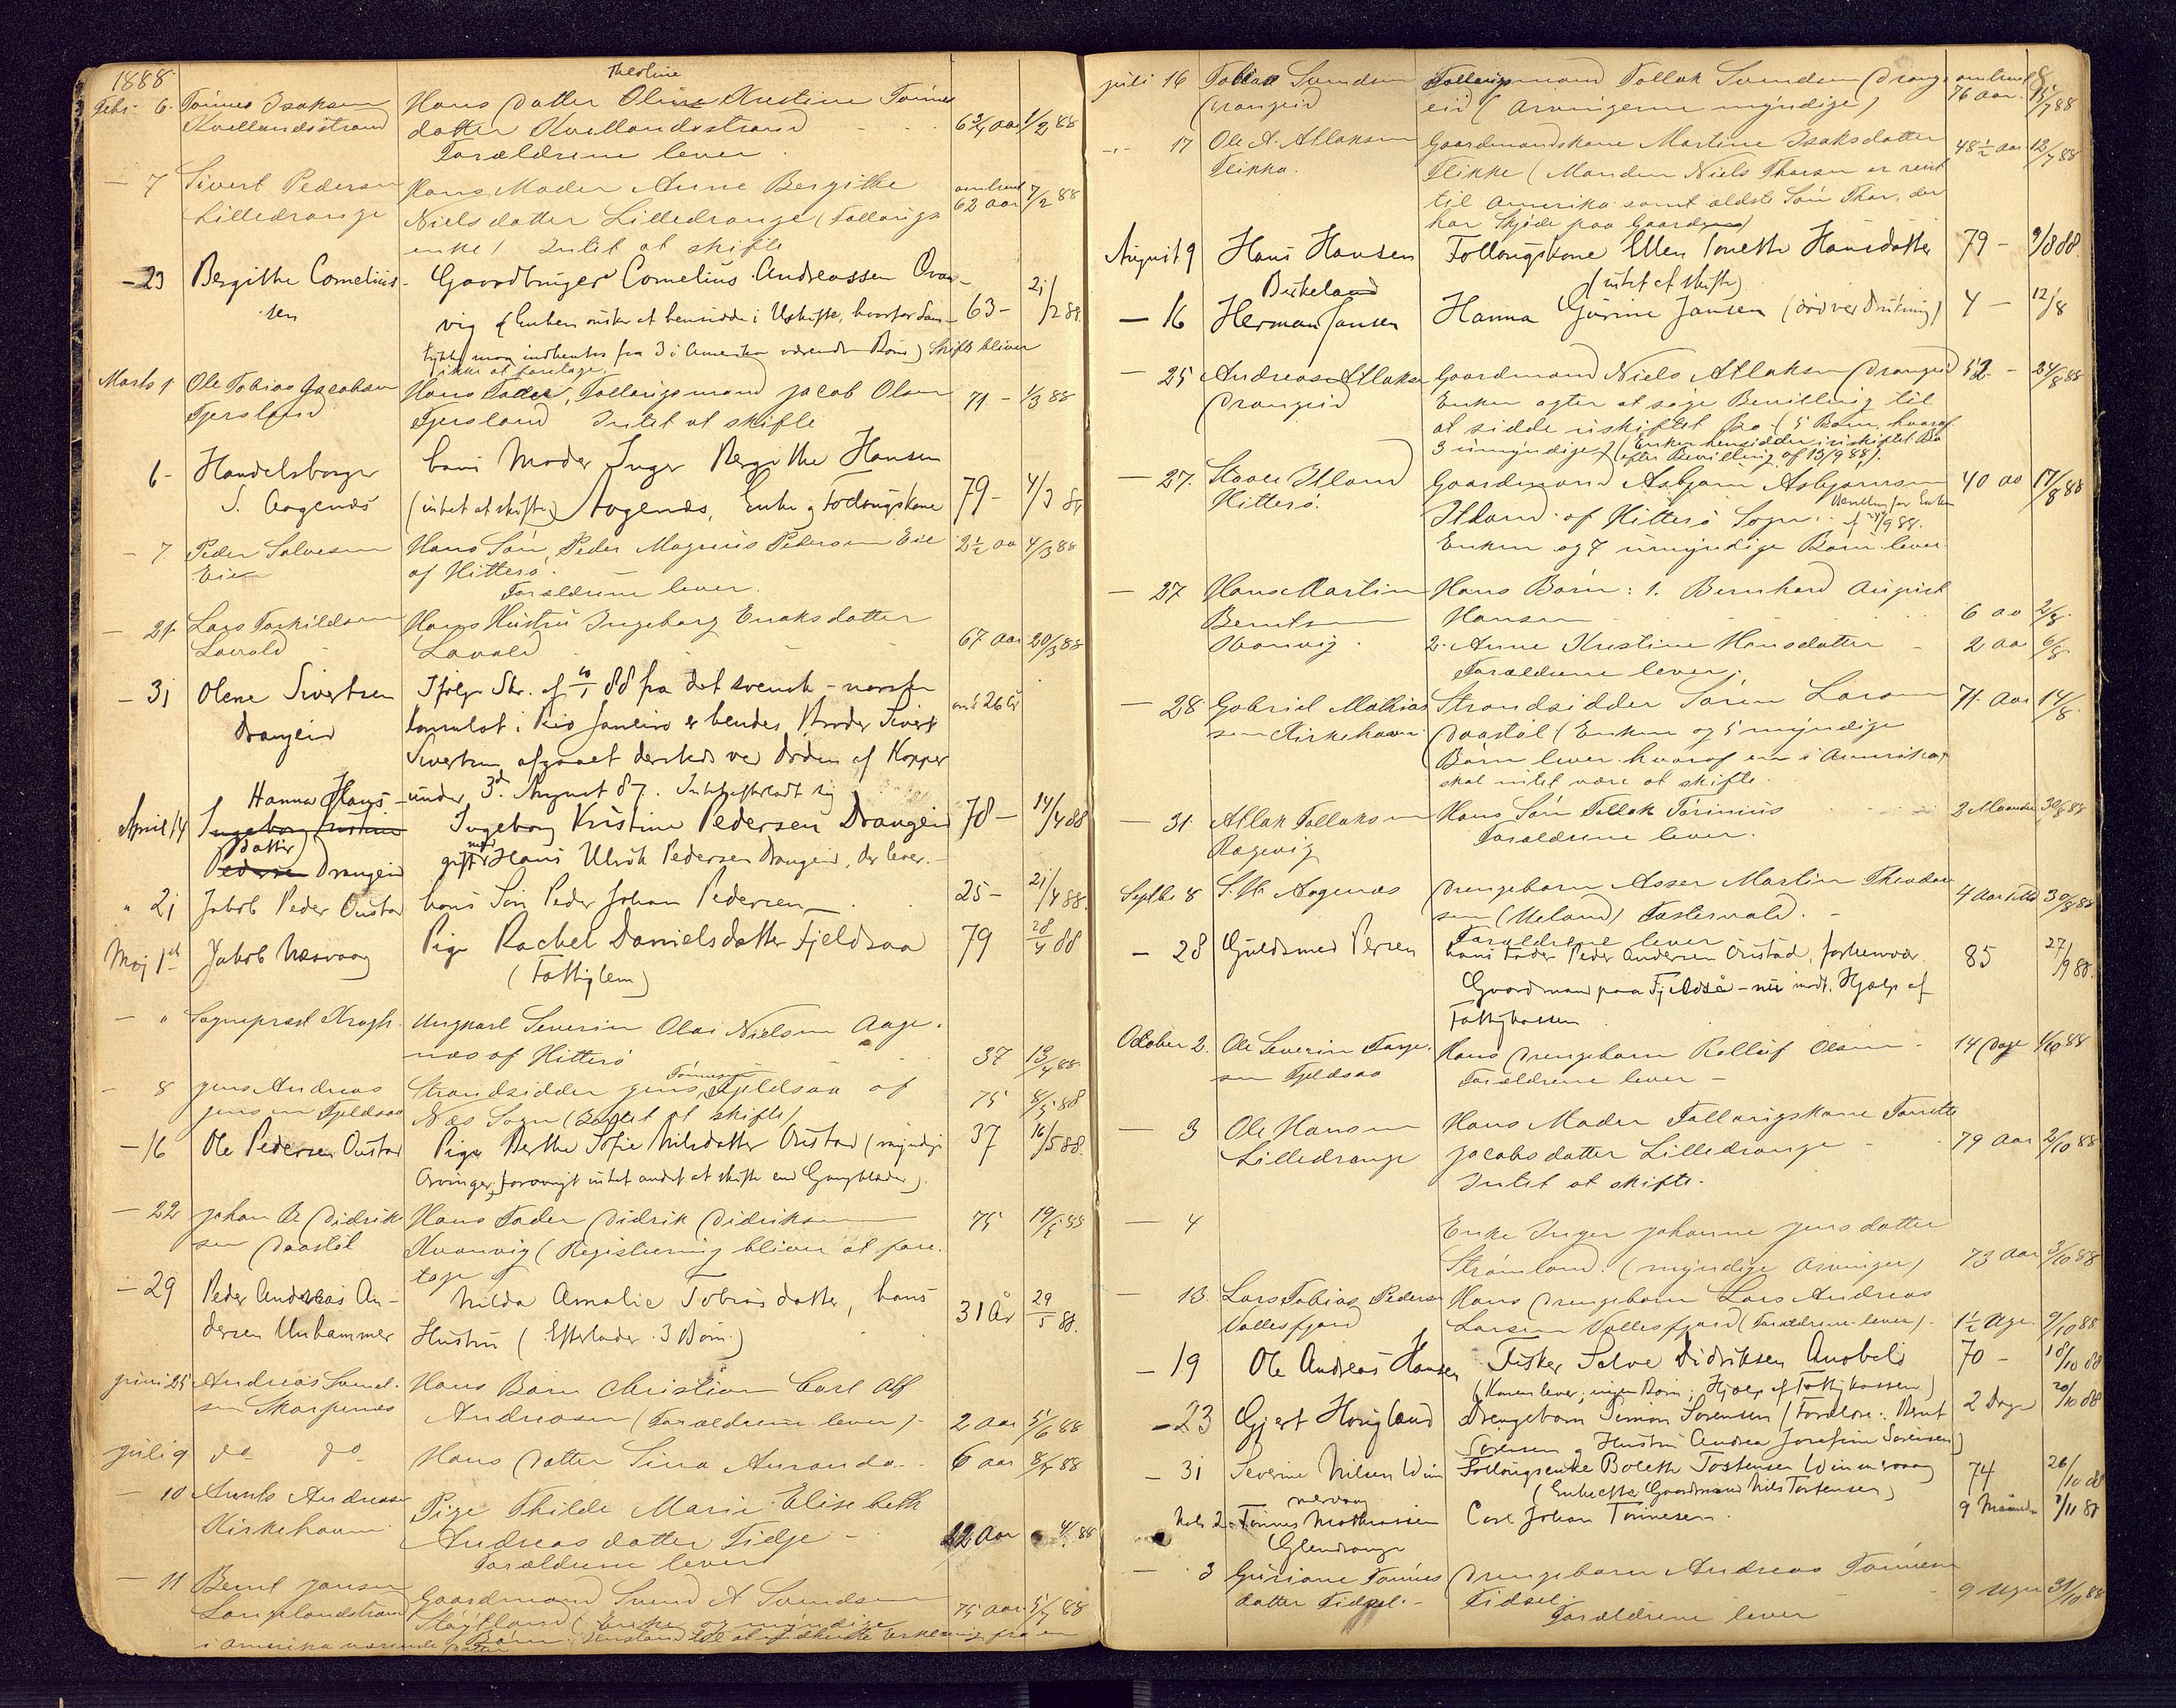 1888
Theoline
Febr. 6. Tönnes Isaksen Hans Datter Oline Kristine Tönnes
Kvellandsstrand datter Kvellandsstrand 6 3/4 aar 1/2 88
Forældrene lever.
— 7 Sivert Pedersen Hans Moder Anne Bergithe omtrent
Lilledrange Nielsdatter Lilledrange (Follaugs 62 aar 7/2 88
enke) Intet at skifte
— 23 Bergithe Cornelius- Gaardbruger Cornelius Andreassen
sen vig (Enken ønsker at hensidde i Uskifte, hvorfor Sam- 63 - 21/2 88.
tykke maa indhentes fra 3 i Amerika værende Børn) Skifte bliver
ikke at foretage.
Marts 1 Ole Tobias Jacobsen Hans Fader, Follaugsmand Jacob Olsen 71 - 1/3 88
Fjersland Fjersland Intet at skifte
6 - Handelsborger hans Moder Inger Bergitthe Hansen
S. Aagenæs (intet at skifte) Aagenæs, Enke og Follaugskone 79 - 4/3 88
— 7. Peder Salvesen Hans Søn, Peder Magnus Pedersen Eie 2 1/2 aa 4/3 88
Eie af Hitterö.
Forældrene lever.
— 21. Lars Torkildsen Hans Hustru Ingeborg Enoksdatter
Lavold Lavold 67 aar 20/3 88
— 31 Olene Sivertsen Ifølge Skr. af 10/1 88 fra det svensk-norske
Drangeid Konsulat i Rio Janeiro er hendes Broder Sivert omt 26 år
Sivertsen afgaaet dersteds ved Døden af Kopper
Hanna Hans- under 3d August 87. Intet efterladt sig
April 14 Ingeborg Kristine Ingeborg Kristine Pedersen Drangeid 78 - 14/4 88
datter
Pedersen Drangeid gift med Hans Ulrik Pedersen Drangeid, der lever.
" 21 Jakob Peder Oustad hans Søn Peder Johan Pedersen 25 - 21/4 88.
Maj 1st Jakob Næsvaag Pige Rachel Danielsdatter Fjeldsaa 79 28/4 88
(Fattiglem)
— " Sognepræst Krogh. Ungkarl Severin Olai Nielsen Aage-
næs af Hitterö 37 13/4 88.
— 8 Jens Andreas Strandsidder Jens Tönnesen Fjeldsaa af 75 8/5 88
Jensen Fjeldsaa Næs Sogn (Intet at skifte)
— 16 Ole Pedersen Oustad Pige Berthe Sofie Nilsdatter Oustad (myndige 37 16/5 88.
Arvinger, forøvrigt intet andet at skifte end Gangklæder).
— 22 Johan B Didrik- Hans Fader Didrik Didriksen 75 19/5 88
sen Daastøl Kvanvig (Registrering bliver at fore-
tage
— 29 Peder Andreas An- Hilda Amalie Tobiasdatter, hans
dersen Urhammer Hustru (Efterlader 3 Børn.) 31 År 29/5 88.
Juni 25 Andreas Samuel- Hans Barn Christian Carl Alf
sen Skarpenes Andreasen (Forældrene lever)- 2 aar 5/6 88
Juli 9 do do Hans Datter Sina Amanda.- 6 aar 8/7 88
— 10 Andreasen Pige Thilde Marie Elisabeth
Kirkehavn Andreasdatter Tidje 22 aar 4/ 88
Forældrene lever
— 11 Bernt Jansen Gaardmand Svend A Svendsen
Langelandstrand (Enke og myndige 75 aar 5/7 88
Børn
i Amerika værende
Juli 16 Tobias Svendsen Follaugsmand Follak Svendsen Drang- omtrent 8
Drangeid eid (Arvingerne myndige) 76 aar. 15/7 88
-"- 17 Ole A. Atlaksen Gaardmandskone Martine Isaksdatter 48 1/2 aar 12/7 88
Flikka. Flikke (Manden Niels Thorsen er reist
til Amerika samt ældste Søn Thor, der
har Skjøde paa Gaarden)
August 9 Hans Hansen Follougskone Ellen Tonette Hansdatter 79 - 9/8 88.
Birkeland (intet at skifte)
— 16 Herman Jansen Hanna Gurine Jansen (død ved Drukning) 4 - 12/8
— 25 Andreas Atlaksen Gaardmand Niels Atlaksen Drangeid 52 - 24/8 88
Drangeid Enken agter at søge Bevilling til
at sidde uskiftet Bo (5 Børn, hvoraf
3 umyndige) (Enken hensidder i uskiftet Bo
efter Bevilling af 13/9 88).
— 27. Gaardmand Asbjørn Asbjørnsen 40 aa 17/8 88
Hitterö. af Hitterö Sogn. Bevilling for Enken
af 24/9 88.
Enken og 7 umyndige Børn lever
— 27 Hans Martin Hans Børn: 1. Bernhard August
Berntsen Hansen 6 aa 2/8
Kvanvig. 2. Anne Kristine Hansdatter 2 aa 6/8
Forældrene lever.
— 28 Gabriel Mathias- Strandsidder Søren Larsen 71. aar 14/8
sen Kirkehavn Daastøl (Enken og 5 myndige
Børn lever hvoraf en i Amerika,
skal intet være at skifte.
— 31. Atlak Follaksen Hans Søn Follak Törinius 2 Maaneder 30/8 88
Ragevig Forældrene lever.
Septbr 8 S. M. Aagenæs Drengebarn Asser Martin Theodor- 4 Aar 30/8 88
sen (Ueland) Fosterœold.
Forældrene lever
— 28 Guldsmed Persen hans Fader Peder Andersen Oustad, forhenvær. 85 27/9 88.
Gaardmand paa Fjeldså - nu modt. Hjælp af
Fattigkassen
October 2. Ole Severin Torje- Hans Drengebarn Rolluf Olsen 14 Dage 1/10 88
sen Fjeldsaa Forældrene lever -
— 3 Ole Hansen Hans Moder Follaugskone Tonette
Lilledrange Jacobsdatter Lilledrange 79 aar 2/10 88
Intet at skifte.
— 4 Enke Inger Johanne Jensdatter
Strømland. (myndige Arvinger) 73 aar 3/10 88
— 13. Lars Tobias Pedersen Hans Drengebarn Lars Andreas
Vollesfjord Larsen Vollesfjord (Forældrene lever). 1 1/2 Uge. 9/10 88
— 19 Ole Andreas Hansen Fisker Salve Didriksen Anabels 70 - 18/10 88
(Konen lever, ingen Børn; Hjælp af Fattigkassen)
— 23 Gjert Hougland Drengebarn Simon Sørensen (Forældre: Bernt 2 Dage 20/10 88
Sørensen og Hustru Andrea Josefine Sørensen)
— 31 Severine Nilsen Win- Follougsenke Bolette Tostensen Winnervaag 74 26/10 88
nervaag (Enke efter Gaardmand Nils Tostensen)
Nov. 2. Tönnes Mathiassen Carl Johan Tönnesen. 9 Måneder 1/11 88
Glendrange
— 3 Guriane Tönnes- Drengebarn Andreas Tönnesen
datter Fidsel.- Fidsel 9 Uger 31/10 88
Forældrene lever